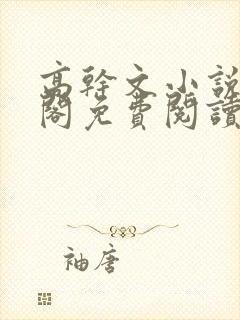 高幹文小說
閣免費閱讀
袖唐